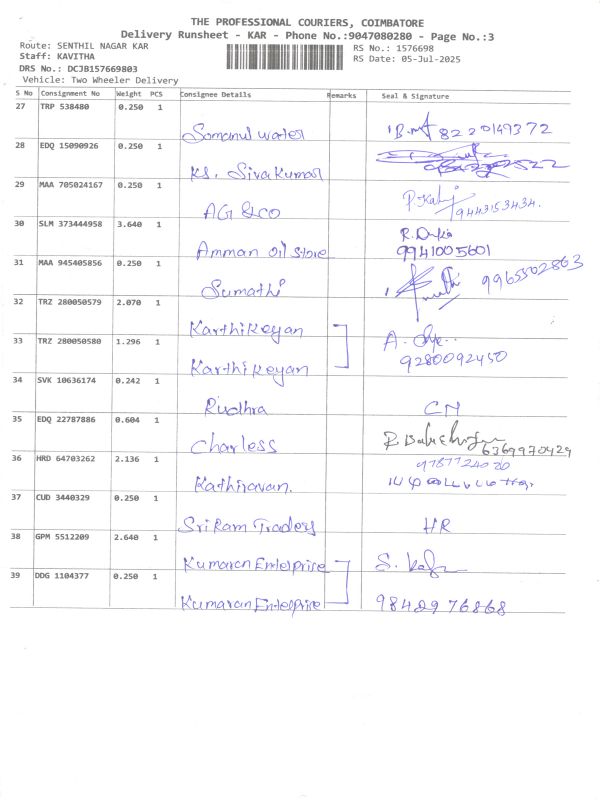 THE PROFESSIONAL COURIERS, COIMBATORE
Delivery Runsheet - KAR - Phone No.:9047080280 - Page No.:3
Route: SENTHIL NAGAR KAR
RS No.: 1576698
Staff: KAVITHA
RS Date: 05-Jul-2025
DRS No.: DCJB157669803
Vehicle: Two Wheeler Delivery
S No Consignment No Weight PCS Consignee Details Remarks Seal & Signature
27 TRP 538480 0.250 1
Somanul water 8220149372
28 EDQ 15090926 0.250 1
KS. Sivakumar
29 MAA 705024167 0.250 1
AG & co 9443153434.
30 SLM 373444958 3.640 1
Amman oil store 9941005601
31 MAA 945405856 0.250 1
Sumathi 9965502863
32 TRZ 280050579 2.070 1
Karthikeyan
33 TRZ 280050580 1.296 1
Karthikeyan 9280092450
34 SVK 10636174 0.242 1
Rudhra CN
35 EDQ 22787886 0.604 1
Charless 6369970429
36 HRD 64703262 2.136 1
Kathiravan. 9787724020
37 CUD 3440329 0.250 1
Sri Ram Traders HR
38 GPM 5512209 2.640 1
Kumaran Enterprise
39 DDG 1104377 0.250 1
Kumaran Enterprise 9842976868